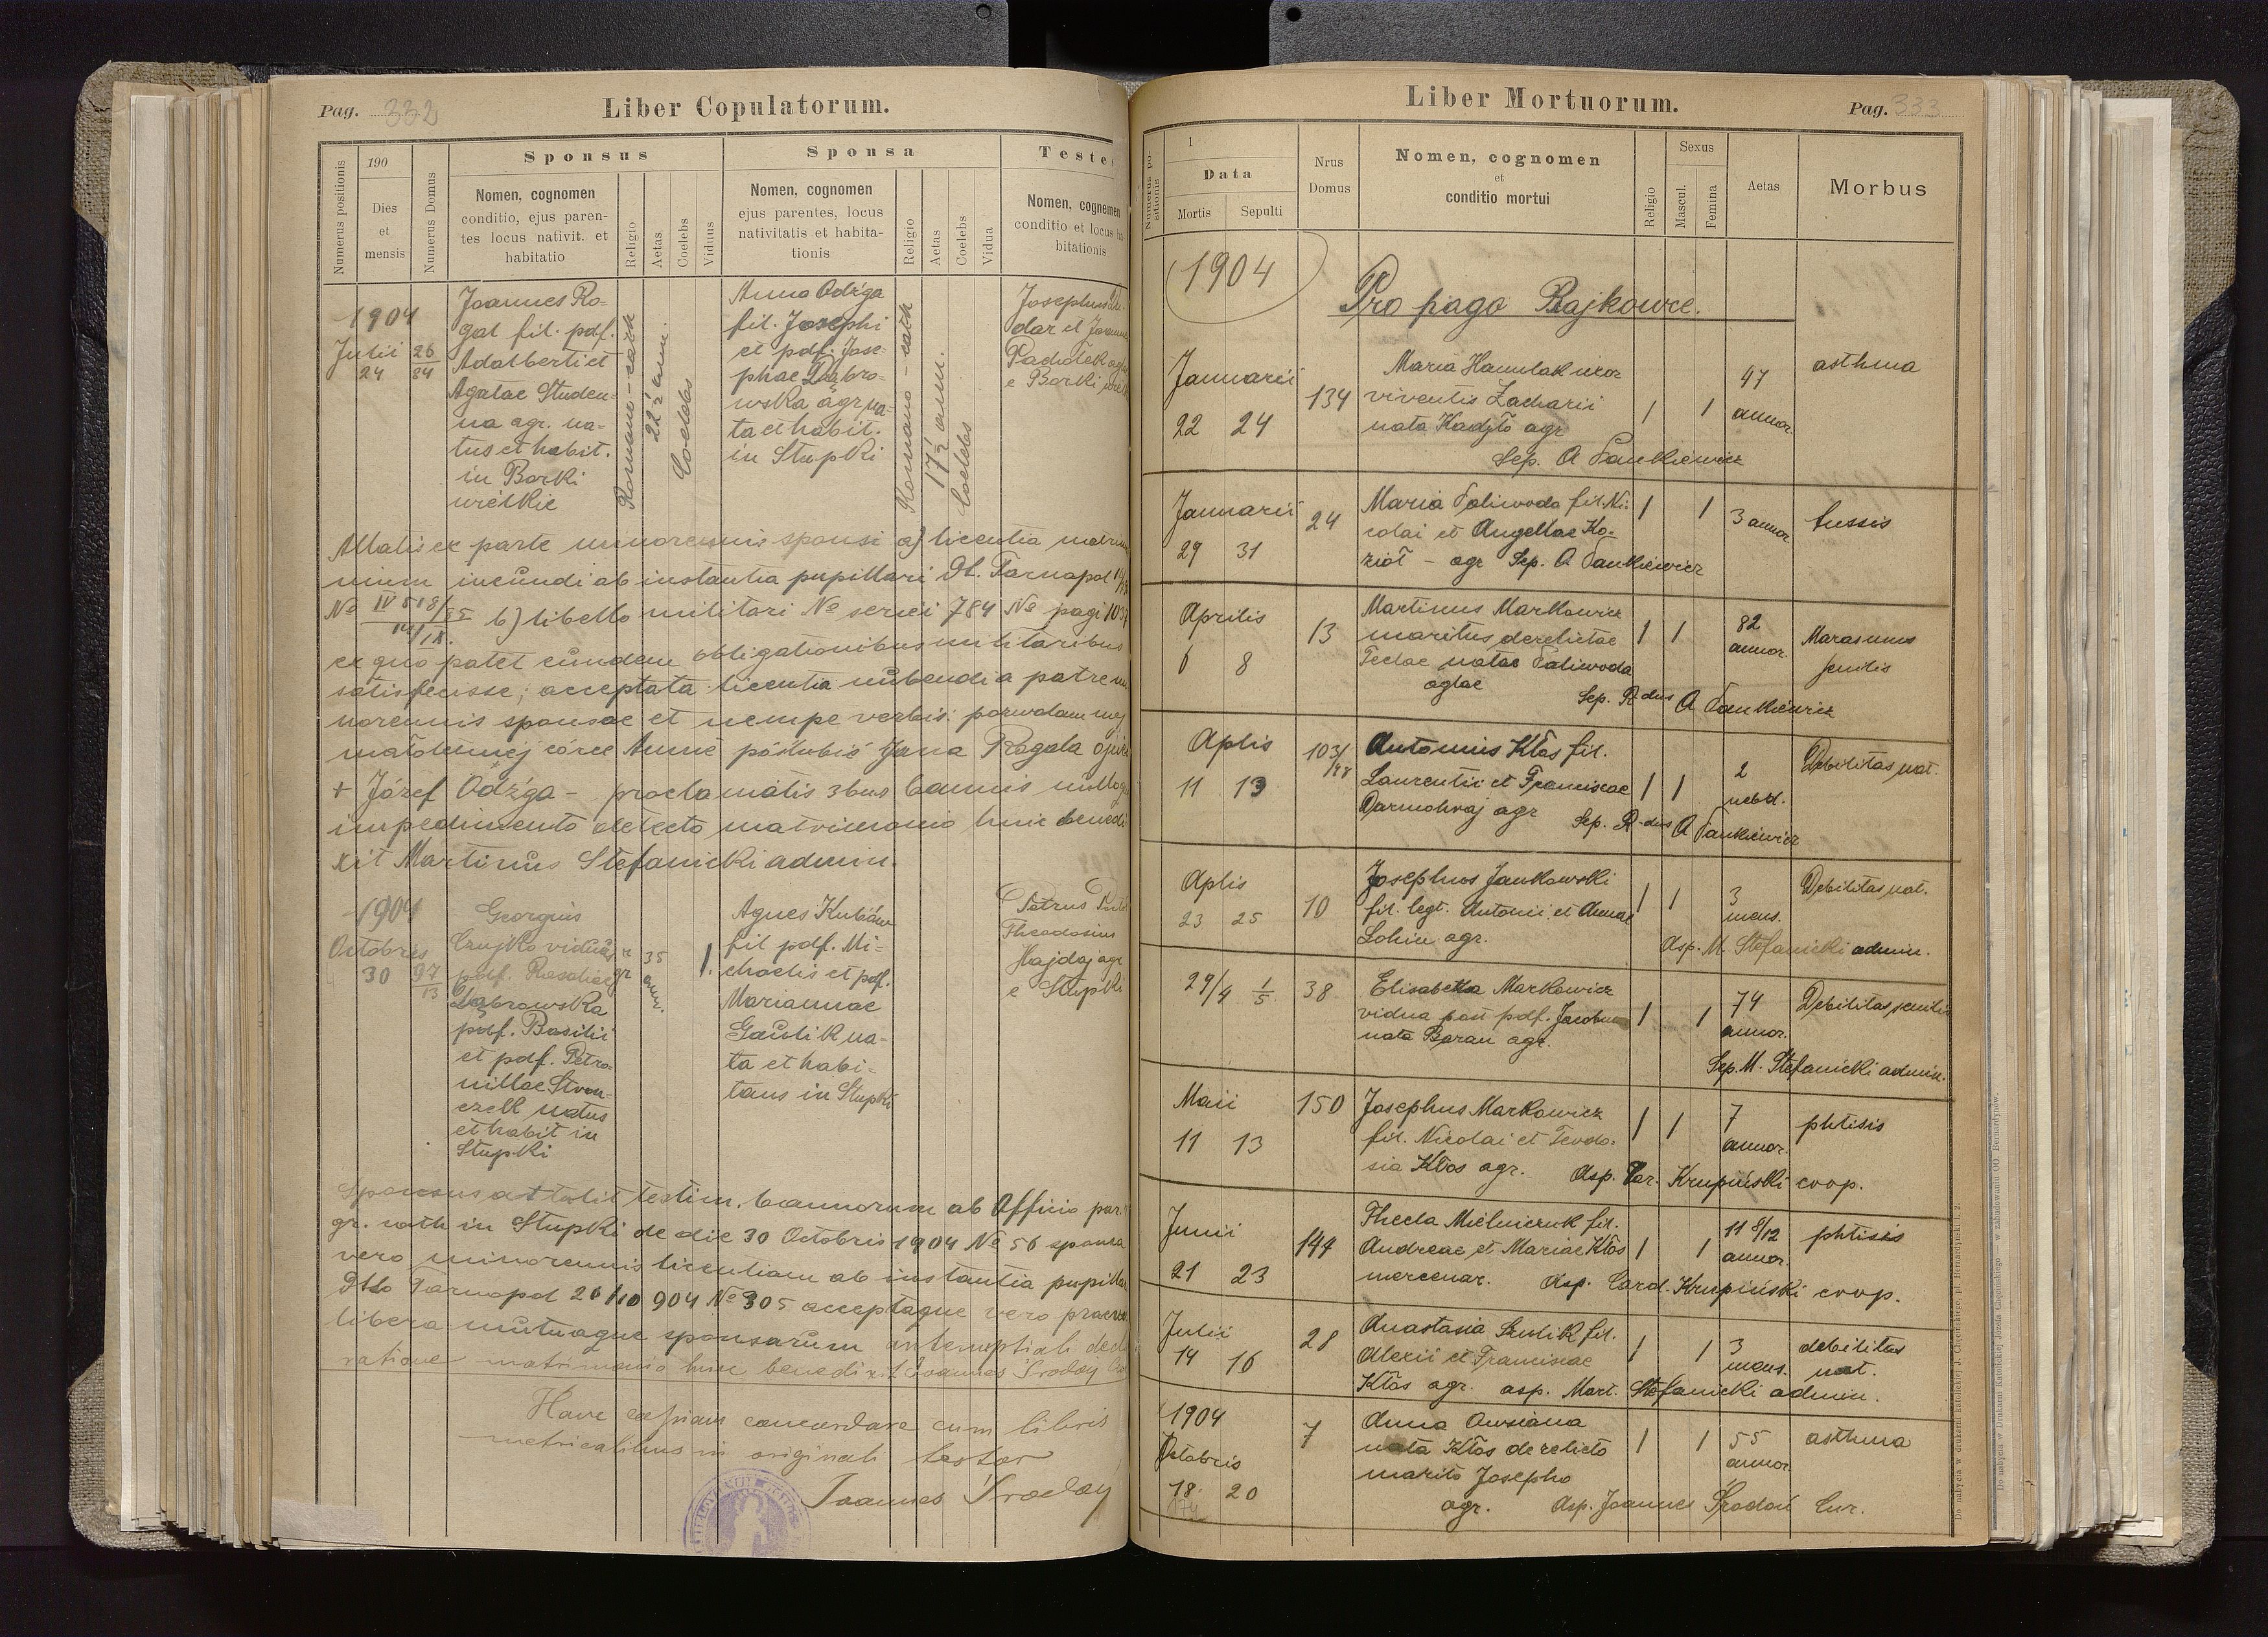 Pag. 332
Liber Copulatorum.
Numerus positionis
190
Dies
et
mensis
Numerus Domus
Sponsus
Nomen, cognomen
conditio, ejus paren-
tes locus nativit. et
habitatio
Religio
Aetas
Coelebs
Viduus
Sponsa
Nomen, cognomen
ejus parentes, locus
nativitatis et habita-
tionis
Religio
Aetas
Coelebs
Vidua
Testes
Nomen, cognomen
conditio et locus ha-
bitationis
1904
Julii 26
24 84
Joannes Ro-
gal fil. pdf.
Adalberti et
Agatae Studen-
na agr. na-
tus et habit.
in Borki
wielkie
Romano-cath
22 ½ ann.
Coelebs
Anna Odźga
fil. Josephi
et pdf. Jose-
phae Dąbro-
wska agr na-
ta et habit.
in Stupki
Romano-cath
17 ½ ann.
Coelebs
Josephus
dar et Joannes
e Borki wielk
Allatis ex parte minorennis sponsi a) licentia matrimo
nium ineundi ab instantia pupillari Dt. Tarnopol
No IV 518/85 b) libello militari No seriei 784 No pagi 103
14/IX.
ex quo patet eundem obligationibus militaribus
satisfecisse; acceptata licentia nubendi a patre mi
norennis sponsae et nempe verbis: pozwalam mej
małoletniej córce Annie poślubić Jana Rogala ojciec
+ Józef Odźga - proclamatis 3bus bannis nulloq
impedimento detecto matrimonio huic benedi
xit Martinus Stefanicki admin.
1904
Octobris
30 97
13
Georgius
Czujko viduus
pdf. Rosaliae
Dąbrowska
pdf. Basilii
et pdf. Petro-
nillae Stron-
czell natus
et habit in
Stupki
gr
35
ann.
1.
Agnes Kubów
fil pdf. Mi-
chaelis et pdf.
Mariannae
Gawlik na-
ta et habi-
tans in Stupki
Petrus
Theodosius
Hajdaj agr
e Stupki
Sponsus attulit testim. bannorum ab Officio par.
gr. cath in Stupki de die 30 Octobris 1904 No 56 sponsa
vero minorennis licentiam ab instantia pupillar
Dtto Tarnopol 26/10 904 No 305 acceptaque vero praevia
libera mutuaque sponsarum antenuptiali decla
ratione matrimonio huic benedixit Joannes Środoń
Hanc copiam concordare cum libris
metricalibus in originali testor
Joannes Środoń
Liber Mortuorum.
Pag. 333
Numerus po-
sitionis
1
Data
Mortis
Sepulti
Nrus
Domus
Nomen, cognomen
et
conditio mortui
Religio
Sexus
Mascul.
Femina
Aetas
Morbus
1904
Pro pago Rajkowce.
Januarii
22 24
134
Maria Hamulak uxor
viventis Zacharii
nata Kadjło agr
Sep. A Pankiewicz
1 1
47
annor.
asthma
Januarii
29 31
24
Maria Paliwoda fil. Ni-
colai et Angellae Ko-
zioł - agr Sep. A Pankiewicz
1 1
3 annor
tussis
Aprilis
6 8
13
Martinus Markowicz
maritus derelictae
Teclae natae Paliwoda
aglae
Sep. R-dus A Pankiewicz
1 1
82
annor.
Marasmus
senilis
Aplis
11 13
103/88
Antonius Kłos fil.
Laurentii et Franciscae
Darmohraj agr
Sep. R-dus A Pankiewicz
1 1
2
hebd.
Debilitas nat.
Aplis
23 25
10
Josephus Jankowski
fil. legt. Antonii et Annae
Lohin agr.
Asp. M. Stefanicki admin.
1 1
3
mens.
Debilitas nat.
29/4 1/5
38
Elisabetha Markowicz
vidua post pdf. Jacobum
nata Baran agr.
1 1
74
annor.
Debilitas senilis
Sep. M. Stefanicki admin.
Maii
11 13
150
Josephus Markowicz
fil. Nicolai et Teodo-
sia Kłos agr.
Asp. Car. Krupiński coop.
1 1
7
annor.
phtisis
Junii
21 23
144
Thecla Mielniczuk fil.
Andreae et Mariae Kłos
mercenar.
Asp. Card. Krupiński coop.
1 1
11 8/12
annor
phtisis
Julii
14 16
28
Anastasia Szulik fil.
Alexii et Franciscae
Kłos agr. asp. Mart. Stefanicki admin.
1 1
3
mens.
debilitas
nat.
1904
Octobris
18. 20
7
Anna Owsiana
nata Kłos derelicto
marito Josepho
agr.
Asp. Joannes Środoń Cur.
1 1
55
annor
asthma